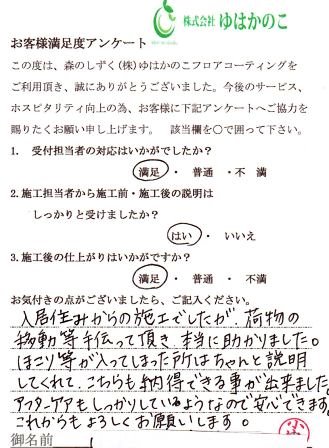 株式会社 ゆはかのこ
お客様満足度アンケート
この度は、森のしずく(株)ゆはかのこフロアコーティングを
ご利用頂き、誠にありがとうございました。今後のサービス、
ホスピタリティ向上の為、お客様に下記アンケートへご協力を
賜りたくお願い申し上げます。 該当欄を○で囲って下さい。
1. 受付担当者の対応はいかがでしたか?
満足 ・ 普通 ・不 満
2.施工担当者から施工前・施工後の説明は
しっかりと受けましたか?
はい ・ いいえ
3.施工後の仕上がりはいかがですか?
満足 ・ 普通 ・ 不満
お気付きの点がございましたら、ご記入ください。
入居住みからの施工でしたが、荷物の
移動等手伝って頂き、本当に助かりました。
ほこり等が入ってしまった所はちゃんと説明
してくれて、こちらも納得できる事が出来ました。
アフターケアもしっかりしているようなので安心できます。
これからもよろしくお願いします。
御名前